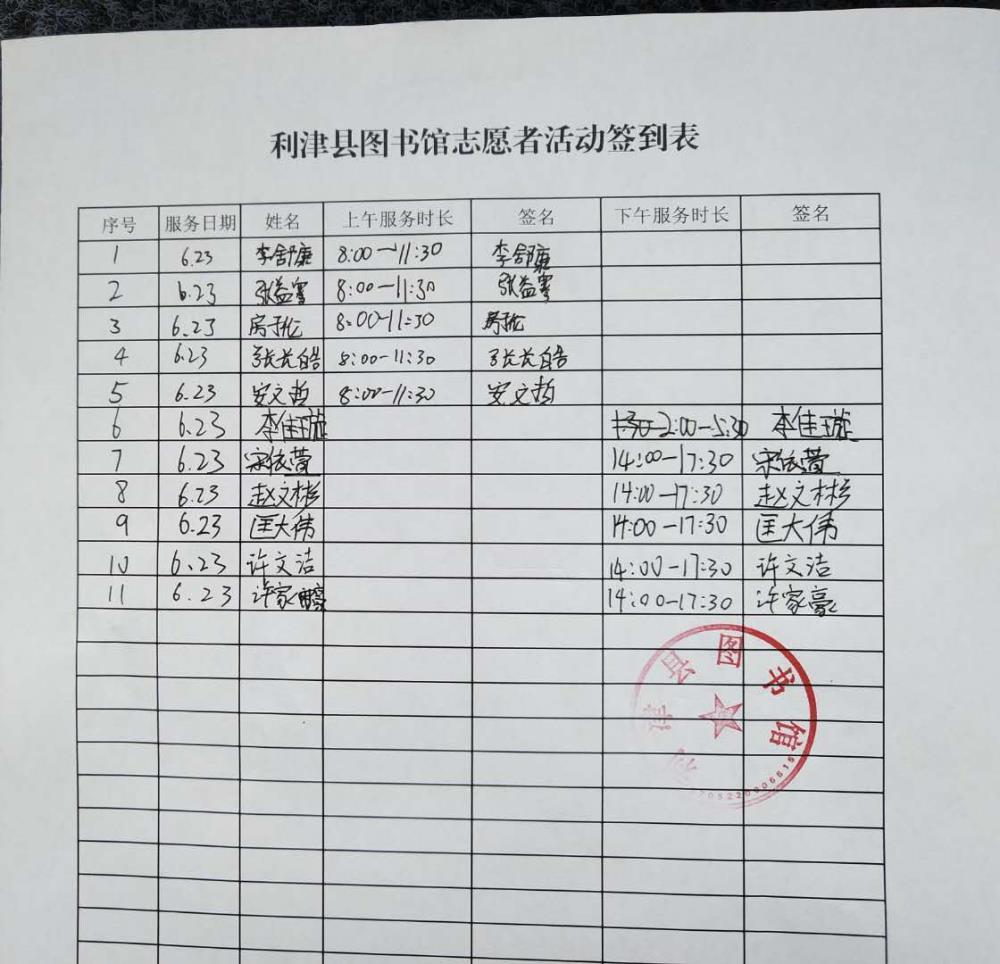 利津县图书馆志愿者活动签到表
序号 服务日期 姓名 上午服务时长 签名 下午服务时长 签名
1 6.23 李舒康 8:00—11:30 李舒康
2 6.23 张益 8:00—11:30 张益
3 6.23 房于伦 8:00-11:30 房于伦
4 6.23 张长皓 8:00-11:30 张长皓
5 6.23 安文哲 8:00-11:30 安文哲
6 6.23 李佳璇 2:00-5:30 李佳璇
7 6.23 宋依萱 14:00-17:30 宋依萱
8 6.23 赵文彬 14:00-17:30 赵文彬
9 6.23 匡大伟 14:00-17:30 匡大伟
10 6.23 许文洁 14:00-17:30 许文洁
11 6.23 许家豪 14:00-17:30 许家豪
津县图书馆